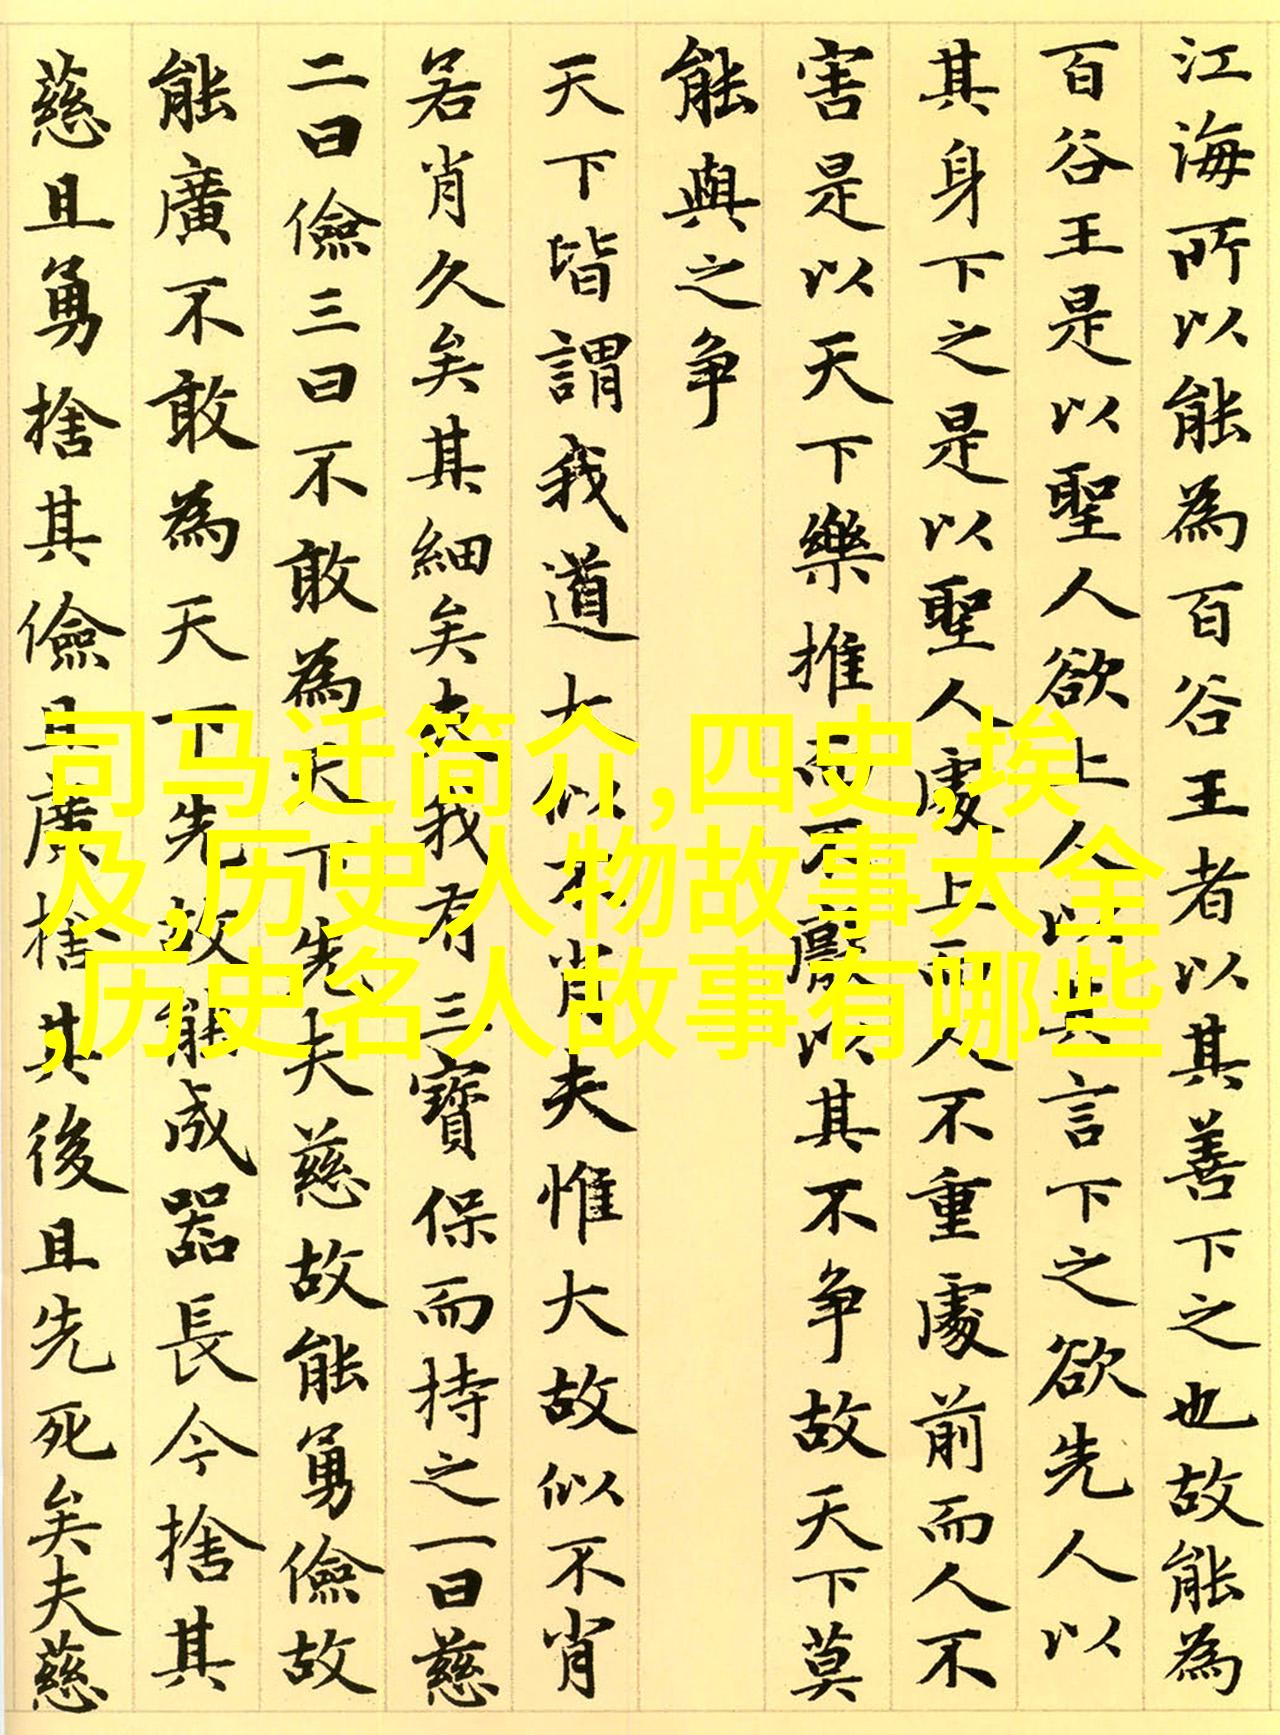 江海所以能為百谷王者以其善下之也故能為
百谷王是以聖人欲上人以其言下之欲先人以
其身下之是以聖人處上而人不重處前而人不
害是以天下樂推而不厭以其不争故天下莫
能與之争
天下皆謂我道大似不肖夫惟大故似不肖
若肖久矣其細矣夫我有三寶保而持之一曰慈
二曰儉三曰不敢為天下先夫慈故能勇儉故
能廣不敢為天下先故能成器長今捨其
慈且勇捨其儉且廣捨其後且先死矣夫慈
司马迁简介,四史,埃
及,历史人物故事大全
,历史名人故事有哪些